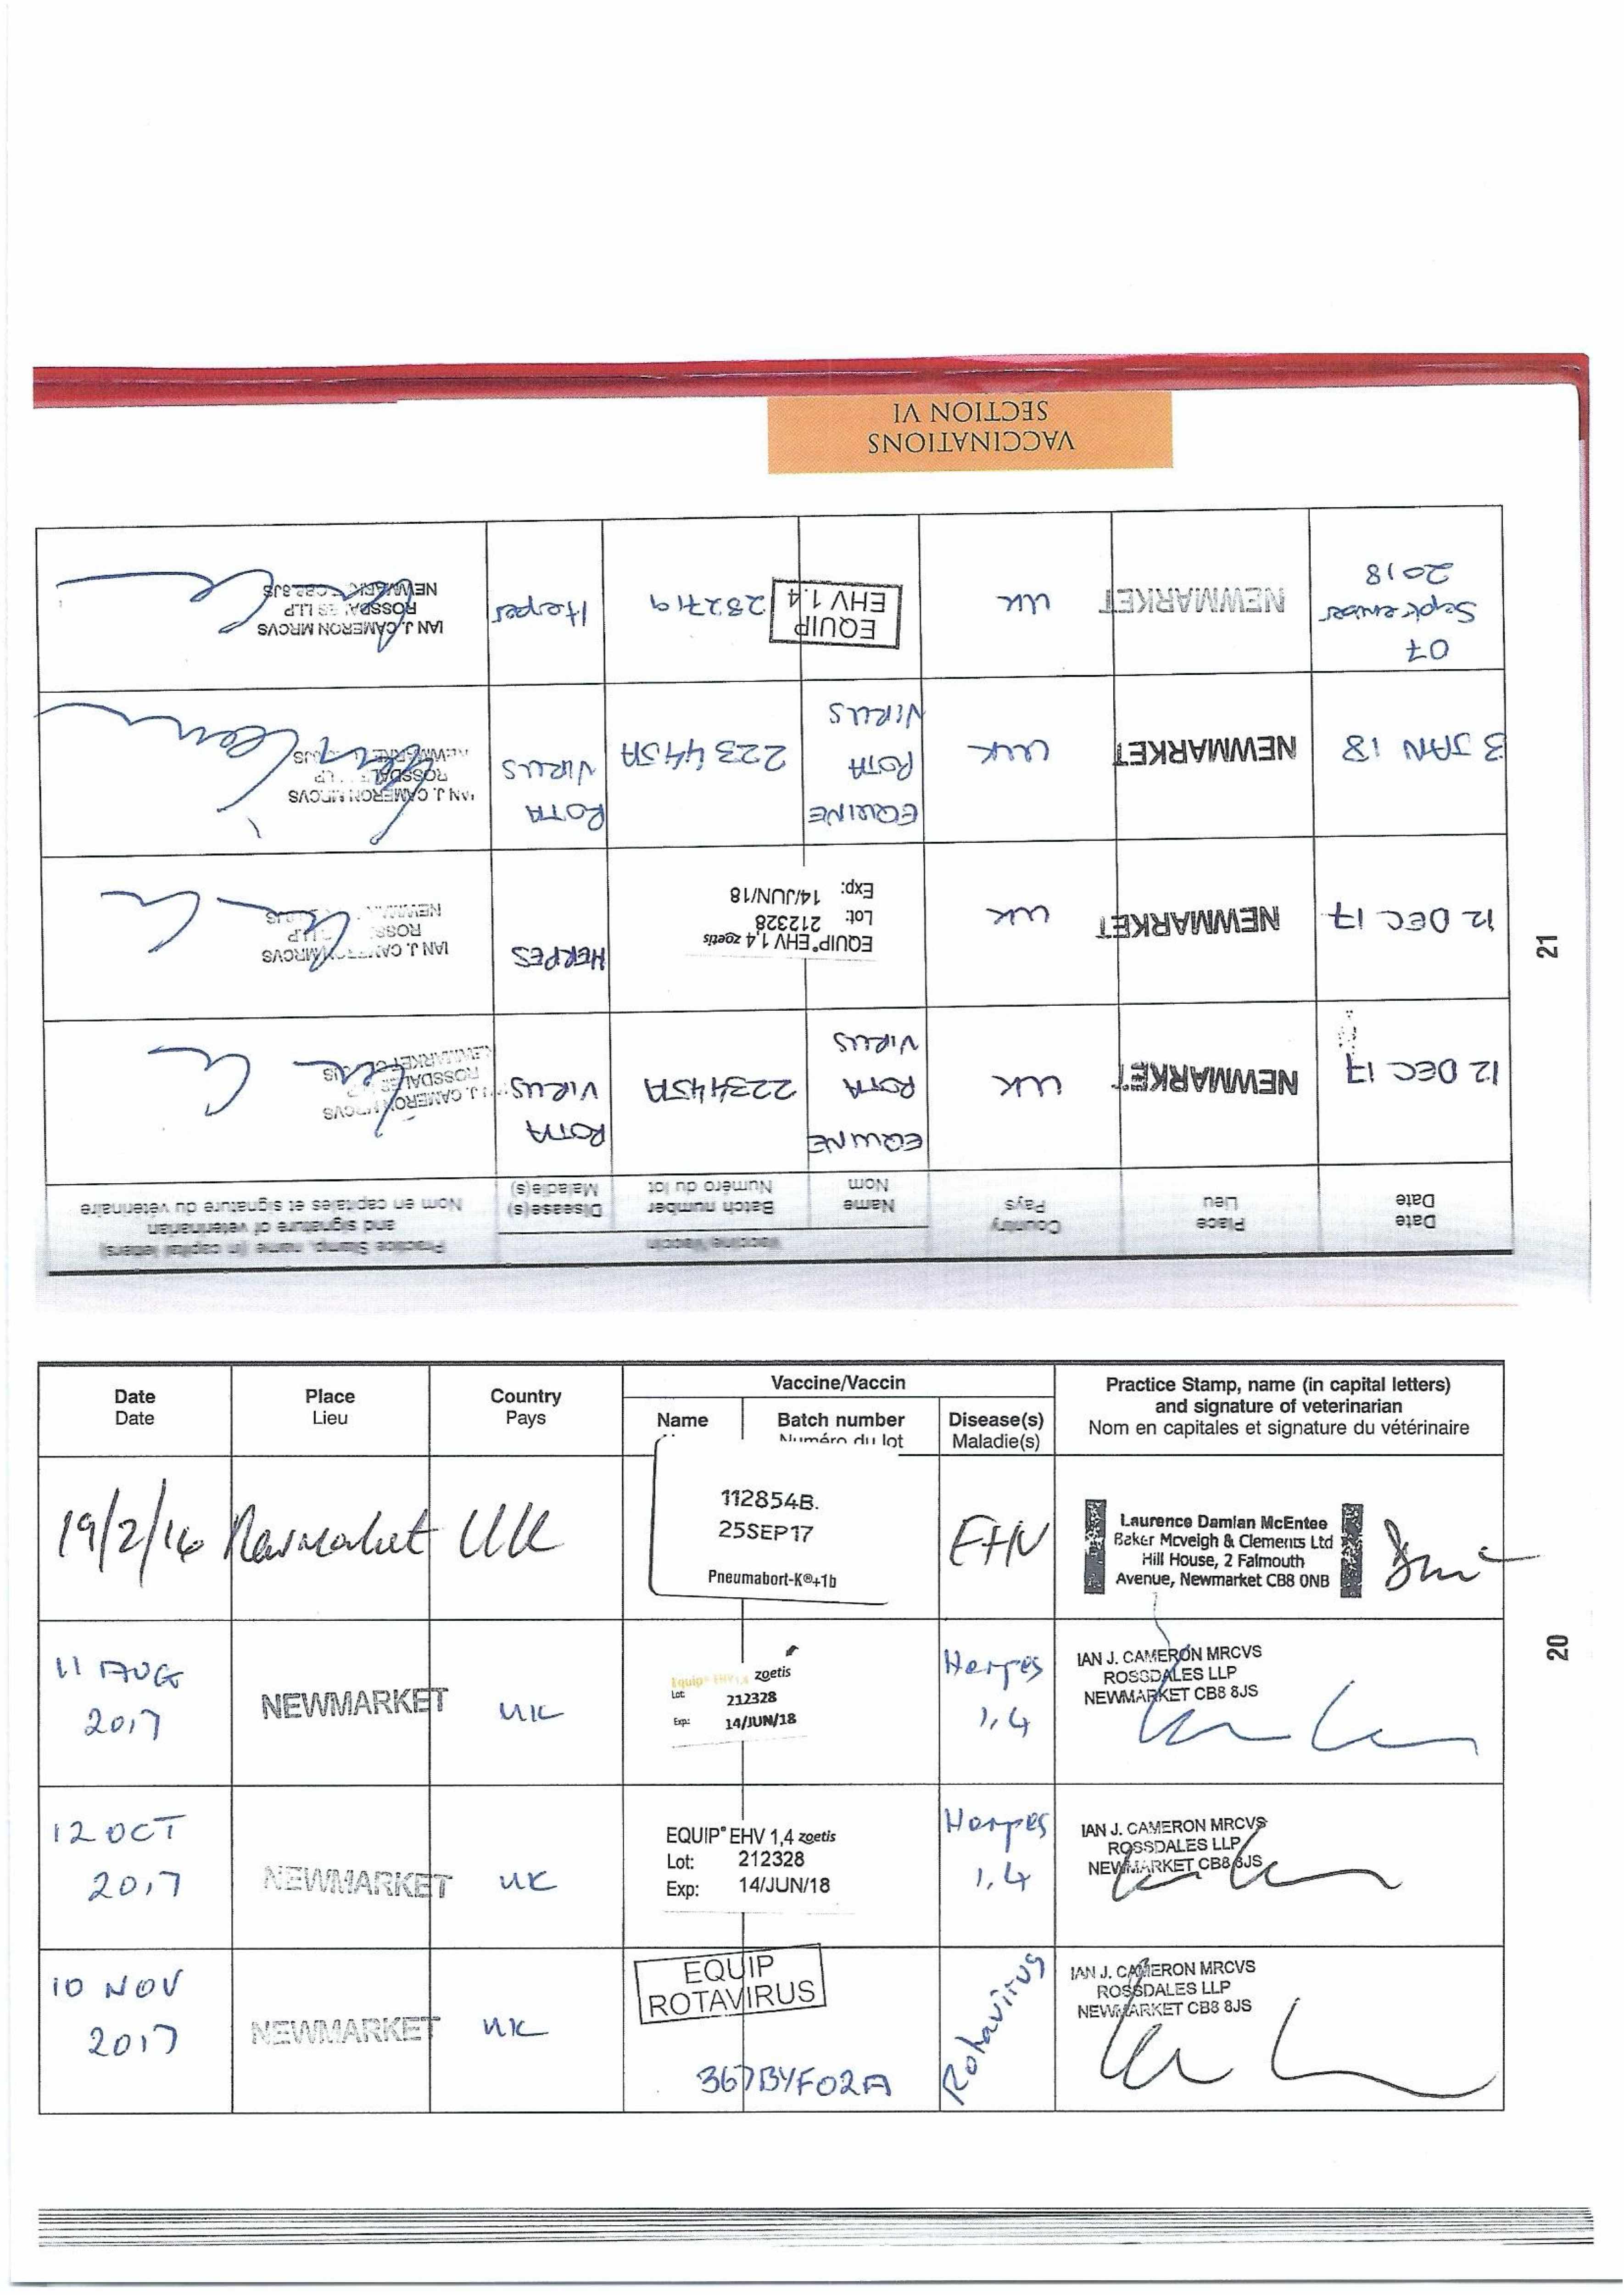 Date
Date
Place
Lieu
Country
Pays
Vaccine/Vaccin
Name
Batch number
Numéro du lot
Disease(s)
Maladie(s)
Practice Stamp, name (in capital letters)
and signature of veterinarian
Nom en capitales et signature du vétérinaire
19/2/16 Newmarket UK
112854B.
25SEP17
Pneumabort-K®+1b
EHV
Laurence Damian McEntee
Baker Mcveigh & Clements Ltd
Hill House, 2 Falmouth
Avenue, Newmarket CB8 0NB
11 AUG
2017
NEWMARKET
UK
Equip® EHV 1,4 zoetis
Lot: 212328
Exp: 14/JUN/18
Herpes
1,4
IAN J. CAMERON MRCVS
ROSSDALES LLP
NEWMARKET CB8 8JS
12 OCT
2017
NEWMARKET
UK
EQUIP® EHV 1,4 zoetis
Lot: 212328
Exp: 14/JUN/18
Herpes
1,4
IAN J. CAMERON MRCVS
ROSSDALES LLP
NEWMARKET CB8 8JS
10 NOV
2017
NEWMARKET
UK
EQUIP
ROTAVIRUS
367BYF02A
Rotavirus
IAN J. CAMERON MRCVS
ROSSDALES LLP
NEWMARKET CB8 8JS
20
Date
Date
Place
Lieu
Country
Pays
Vaccine/Vaccin
Name
Nom
Batch number
Numéro du lot
Disease(s)
Maladie(s)
Practice Stamp, name (in capital letters)
and signature of veterinarian
Nom en capitales et signature du vétérinaire
12 DEC 17
NEWMARKET
UK
EQUINE
ROTA
VIRUS
223445A
ROTA
VIRUS
J. CAMERON MRCVS
ROSSDALES
NEWMARKET
12 DEC 17
NEWMARKET
UK
EQUIP® EHV 1,4 zoetis
Lot: 212328
Exp: 14/JUN/18
HERPES
IAN J. CAMERON MRCVS
3 JAN 18
NEWMARKET
UK
EQUINE
ROTA
VIRUS
223445A
ROTA
VIRUS
IAN J. CAMERON MRCVS
ROSSDALES
07
September
2018
NEWMARKET
UK
EQUIP
EHV 1.4
282719
Herpes
IAN J. CAMERON MRCVS
ROSSDALES LLP
NEWMARKET CB8 8JS
VACCINATIONS
SECTION VI
21